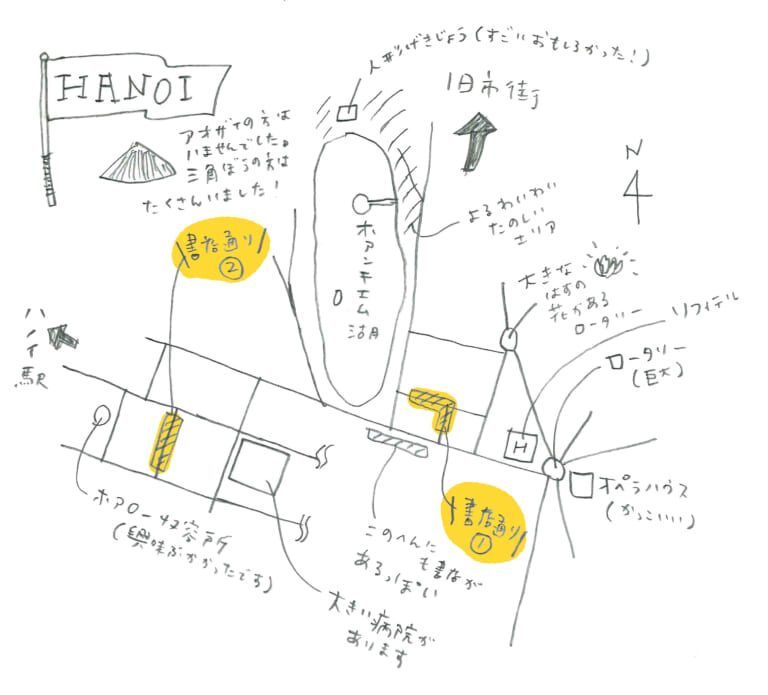 人形げきじょう(すごいおもしろかった!)
HANOI
旧市街
アオザイの方は
いませんでした。
三角ぼうの方は
たくさんいました!
N
よるわいわい
たのしい
エリア
書店通り
②
ホアンキエム
湖
大きな
はすの
花がある
ロータリー
ソフィテル
ハノイ
駅
ロータリー
(巨大)
H
オペラハウス
(かっこいい)
書店通り
①
ホアロー収容所
(興味ぶかかったです)
このへんに
も書店が
あるっぽい
大きい病院が
あります